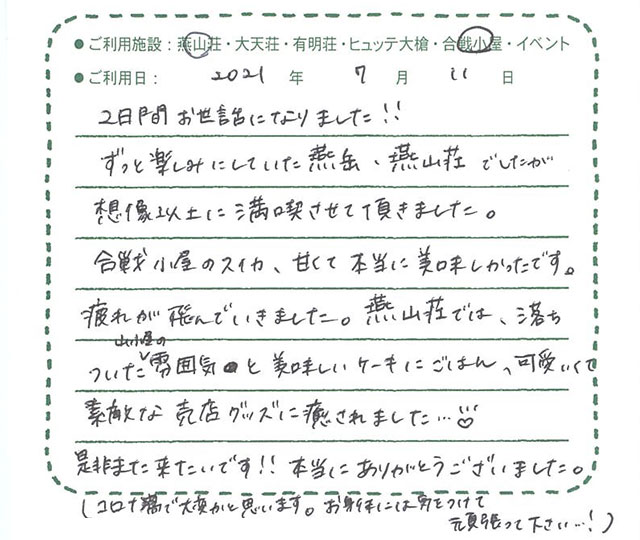 ●ご利用施設：燕山荘・大天荘・有明荘・ヒュッテ大槍・合戦小屋・イベント
●ご利用日： 2021 年 7 月 11 日
2日間お世話になりました!!
ずっと楽しみにしていた燕岳、燕山荘でしたが
想像以上に満喫させて頂きました。
合戦小屋のスイカ、甘くて本当に美味しかったです。
疲れが飛んでいきました。燕山荘では、落ち
ついた山小屋の雰囲気と美味しいケーキにごはん、可愛いくて
素敵な売店グッズに癒されました…
是非また来たいです!! 本当にありがとうございました。
(コロナ禍で大変かと思います。お身体には気をつけて
頑張って下さい…!)